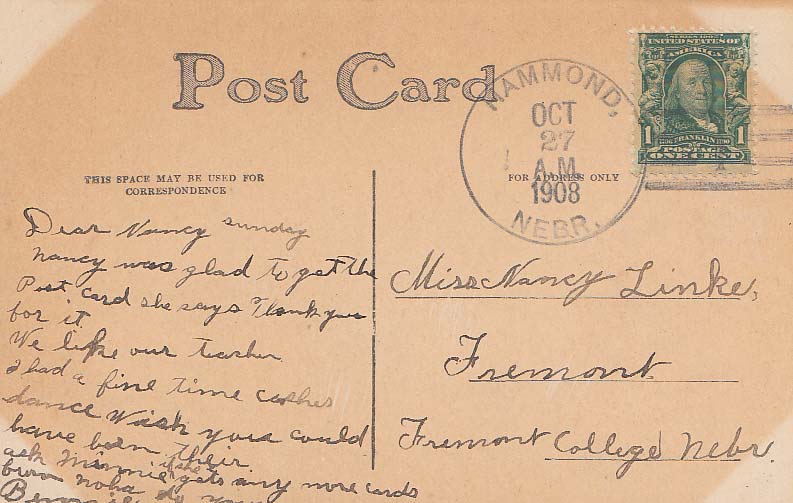 Post Card
THIS SPACE MAY BE USED FOR
CORRESPONDENCE
FOR ADDRESS ONLY
HAMMOND,
OCT
27
A.M.
1908
NEBR.
SERIES 1902
UNITED STATES OF
AMERICA
1 FRANKLIN 1
POSTAGE
ONE CENT
Dear Nancy Sunday
Nancy was glad to get the
Post card she says Thank you
for it.
We like our teacher
I had a fine time
dance Wish you could
have been their
ask Minnie if she gets any more cards
Miss Nancy Linke,
Fremont
Fremont College Nebr.